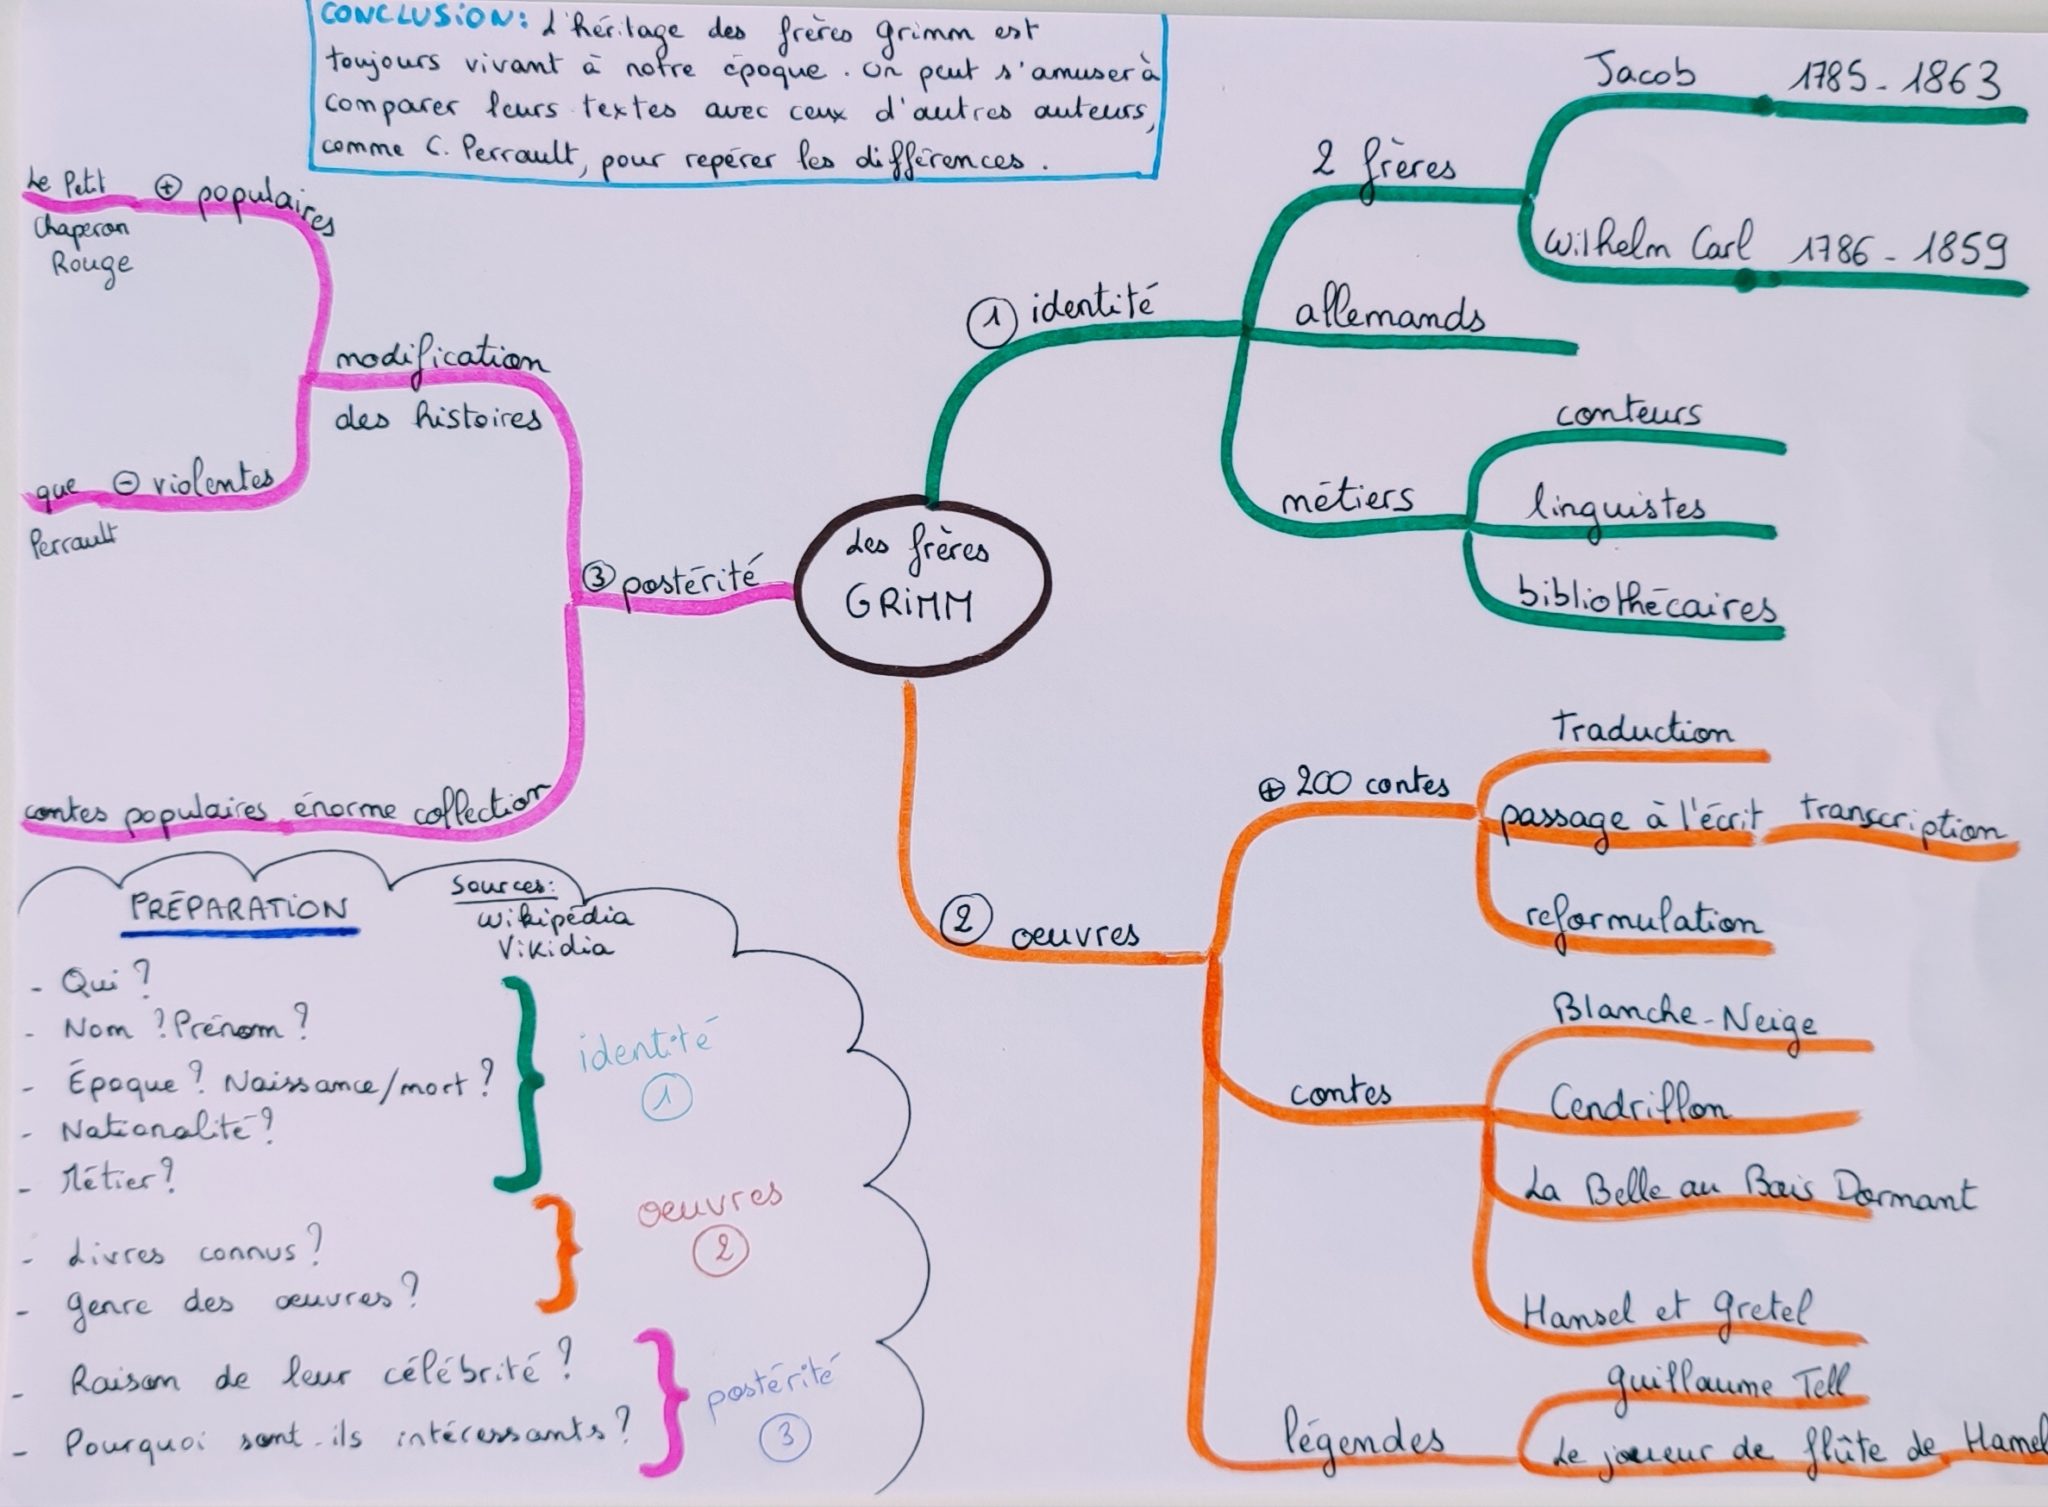 CONCLUSION: L'héritage des frères Grimm est
toujours vivant à notre époque. On peut s'amuser à
comparer leurs textes avec ceux d'autres auteurs,
comme C. Perrault, pour repérer les différences.
Les frères
GRIMM
① identité
2 frères
Jacob 1785-1863
Wilhelm Carl 1786-1859
allemands
métiers
conteurs
linguistes
bibliothécaires
② oeuvres
⊕ 200 contes
Traduction
passage à l'écrit transcription
reformulation
contes
Blanche-Neige
Cendrillon
La Belle au Bois Dormant
Hansel et Gretel
légendes
Guillaume Tell
Le joueur de flûte de Hamel
③ postérité
modification
des histoires
⊕ populaires
Le Petit
Chaperon
Rouge
⊖ violentes
que
Perrault
énorme collection
contes populaires
PRÉPARATION
Sources:
Wikipédia
Vikidia
- Qui?
- Nom? Prénom?
- Époque? Naissance/mort?
- Nationalité?
- Métier?
identité
①
- Livres connus?
- Genre des oeuvres?
oeuvres
②
- Raison de leur célébrité?
- Pourquoi sont-ils intéressants?
postérité
③